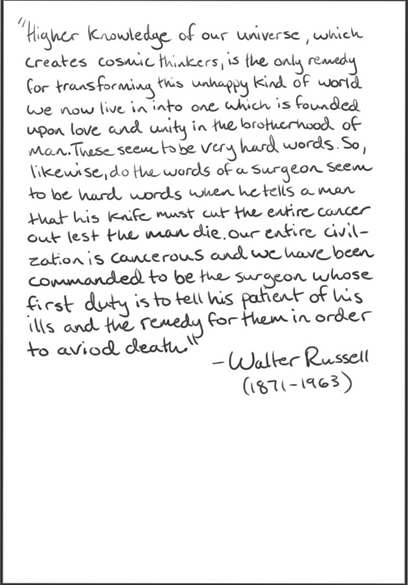 "Higher knowledge of our universe, which
creates cosmic thinkers, is the only remedy
for transforming this unhappy kind of world
we now live in into one which is founded
upon love and unity in the brotherhood of
man. These seem to be very hard words. So,
likewise, do the words of a surgeon seem
to be hard words when he tells a man
that his knife must cut the entire cancer
out lest the man die. Our entire civil-
zation is cancerous and we have been
commanded to be the surgeon whose
first duty is to tell his patient of his
ills and the remedy for them in order
to aviod death."
-Walter Russell
(1871-1963)